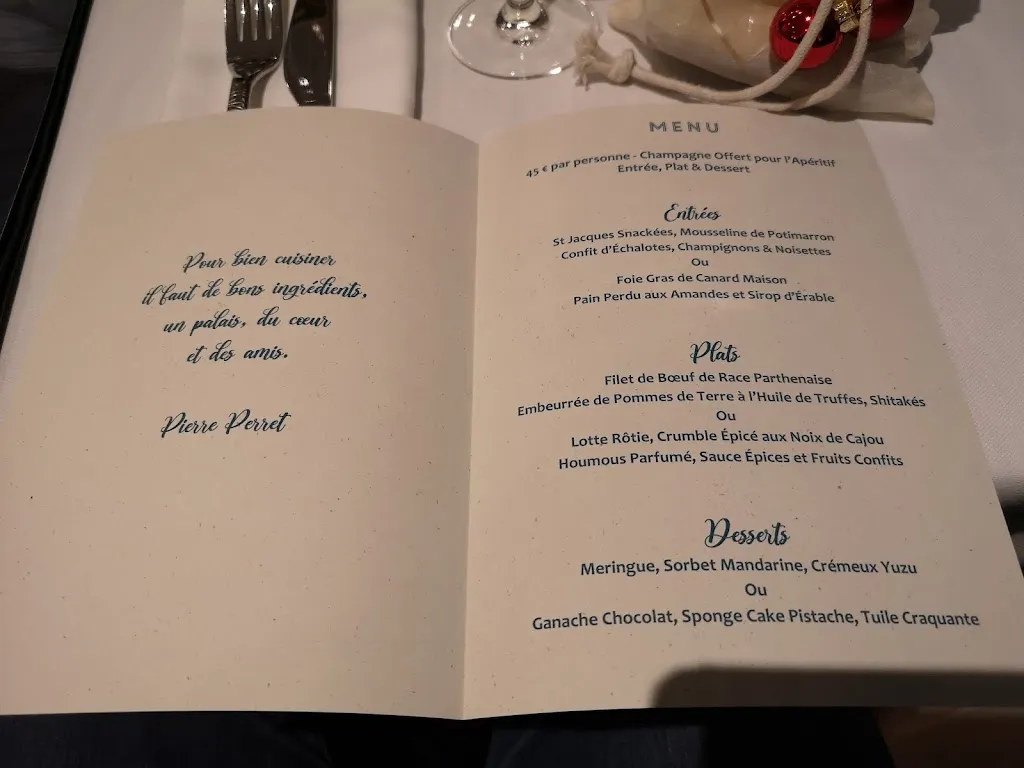 Pour bien cuisiner
il faut de bons ingrédients,
un palais, du cœur
et des amis.
Pierre Perret
MENU
45 € par personne - Champagne Offert pour l'Apéritif
Entrée, Plat & Dessert
Entrées
St Jacques Snackées, Mousseline de Potimarron
Confit d'Échalotes, Champignons & Noisettes
Ou
Foie Gras de Canard Maison
Pain Perdu aux Amandes et Sirop d'Érable
Plats
Filet de Bœuf de Race Parthenaise
Embeurrée de Pommes de Terre à l'Huile de Truffes, Shitakés
Ou
Lotte Rôtie, Crumble Épicé aux Noix de Cajou
Houmous Parfumé, Sauce Épices et Fruits Confits
Desserts
Meringue, Sorbet Mandarine, Crémeux Yuzu
Ou
Ganache Chocolat, Sponge Cake Pistache, Tuile Craquante